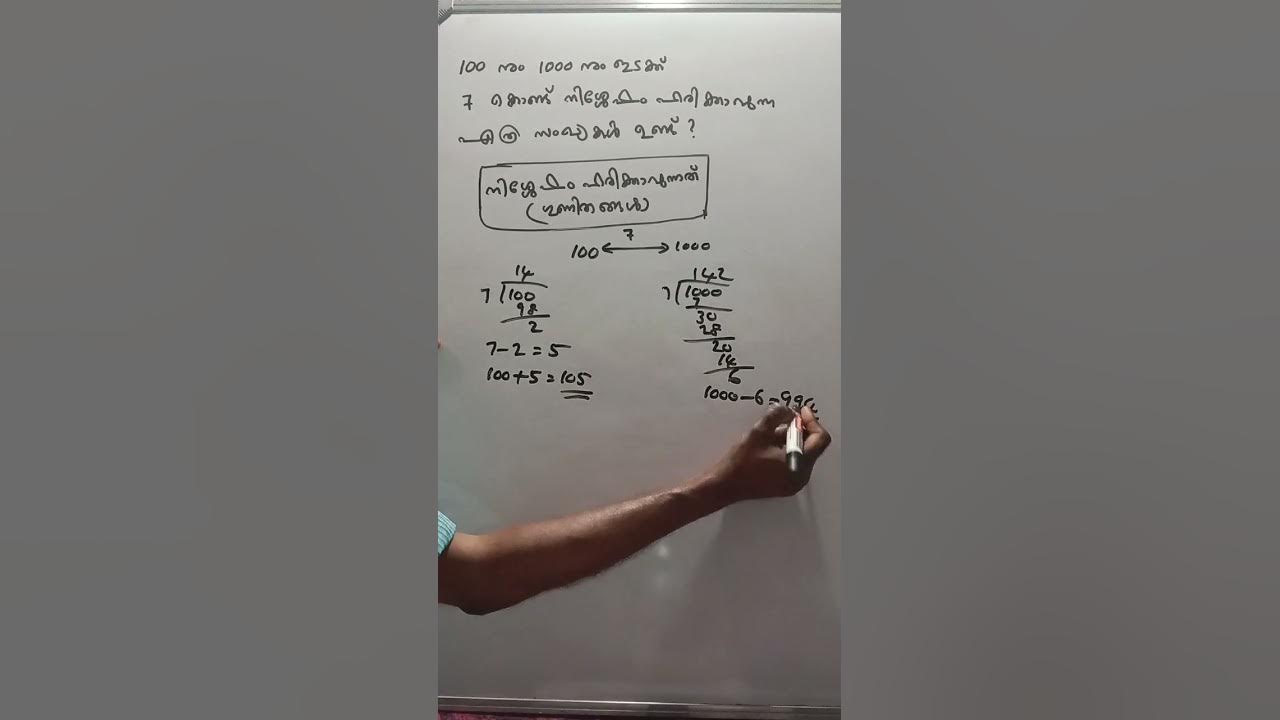 100 നും 1000 നും ഇടക്ക്
7 കൊണ്ട് നിശ്ശേഷം ഹരിക്കാവുന്ന
എത്ര സംഖ്യകൾ ഉണ്ട് ?
നിശ്ശേഷം ഹരിക്കാവുന്നത്
(ഗുണിതങ്ങൾ)
7
100 ⟷ 1000
14
7 100
98
2
7-2 = 5
100+5 = 105
142
7 1000
7
30
28
20
14
6
1000-6 = 994